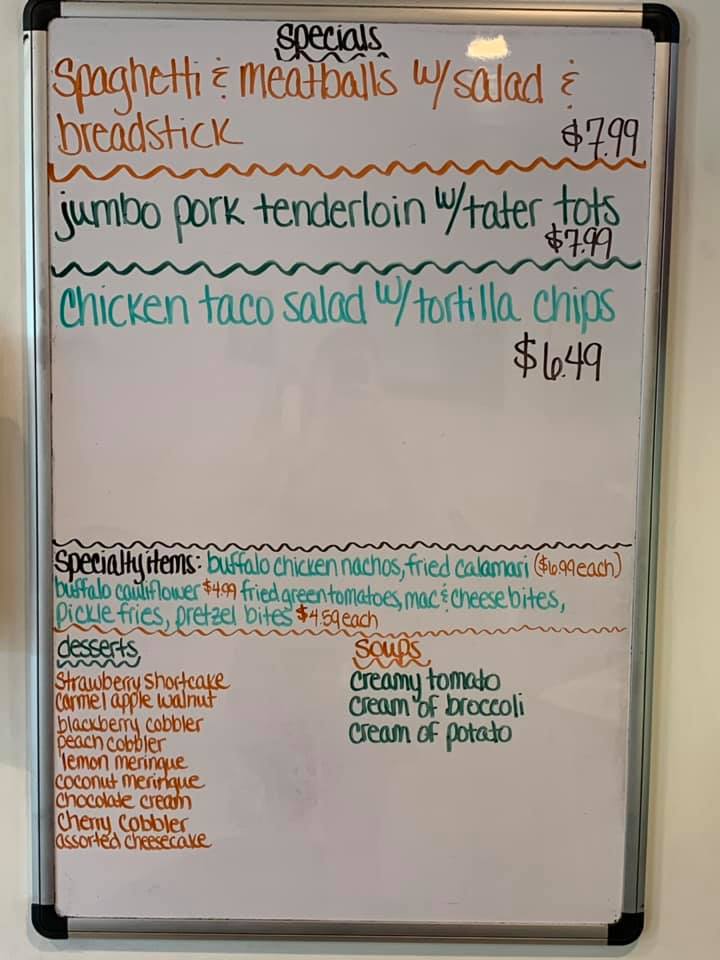 Specials
Spaghetti & meatballs w/ salad &
breadstick $7.99
jumbo pork tenderloin w/ tater tots
$7.99
Chicken taco salad w/ tortilla chips
$6.49
Specialty items: buffalo chicken nachos, fried calamari ($6.99 each)
buffalo cauliflower $4.99 fried green tomatoes, mac & cheese bites,
pickle fries, pretzel bites $4.59 each
desserts
Strawberry shortcake
carmel apple walnut
blackberry cobbler
peach cobbler
lemon meringue
coconut meringue
chocolate cream
Cherry cobbler
assorted cheesecake
Soups
creamy tomato
cream of broccoli
cream of potato